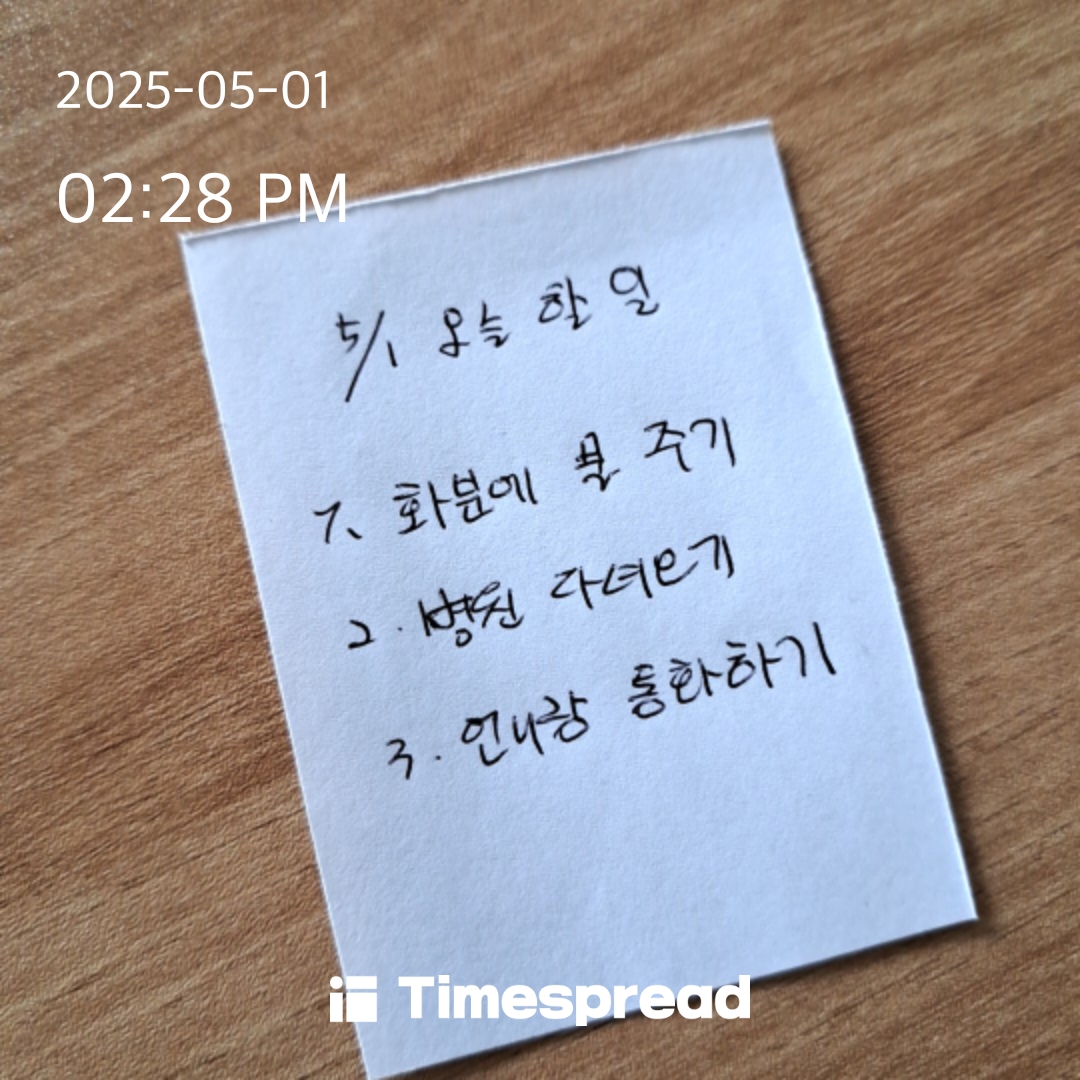 2025-05-01
02:28 PM
5/1 오늘 할 일
1. 화분에 물 주기
2. 병원 다녀오기
3. 언니랑 통화하기
Timespread